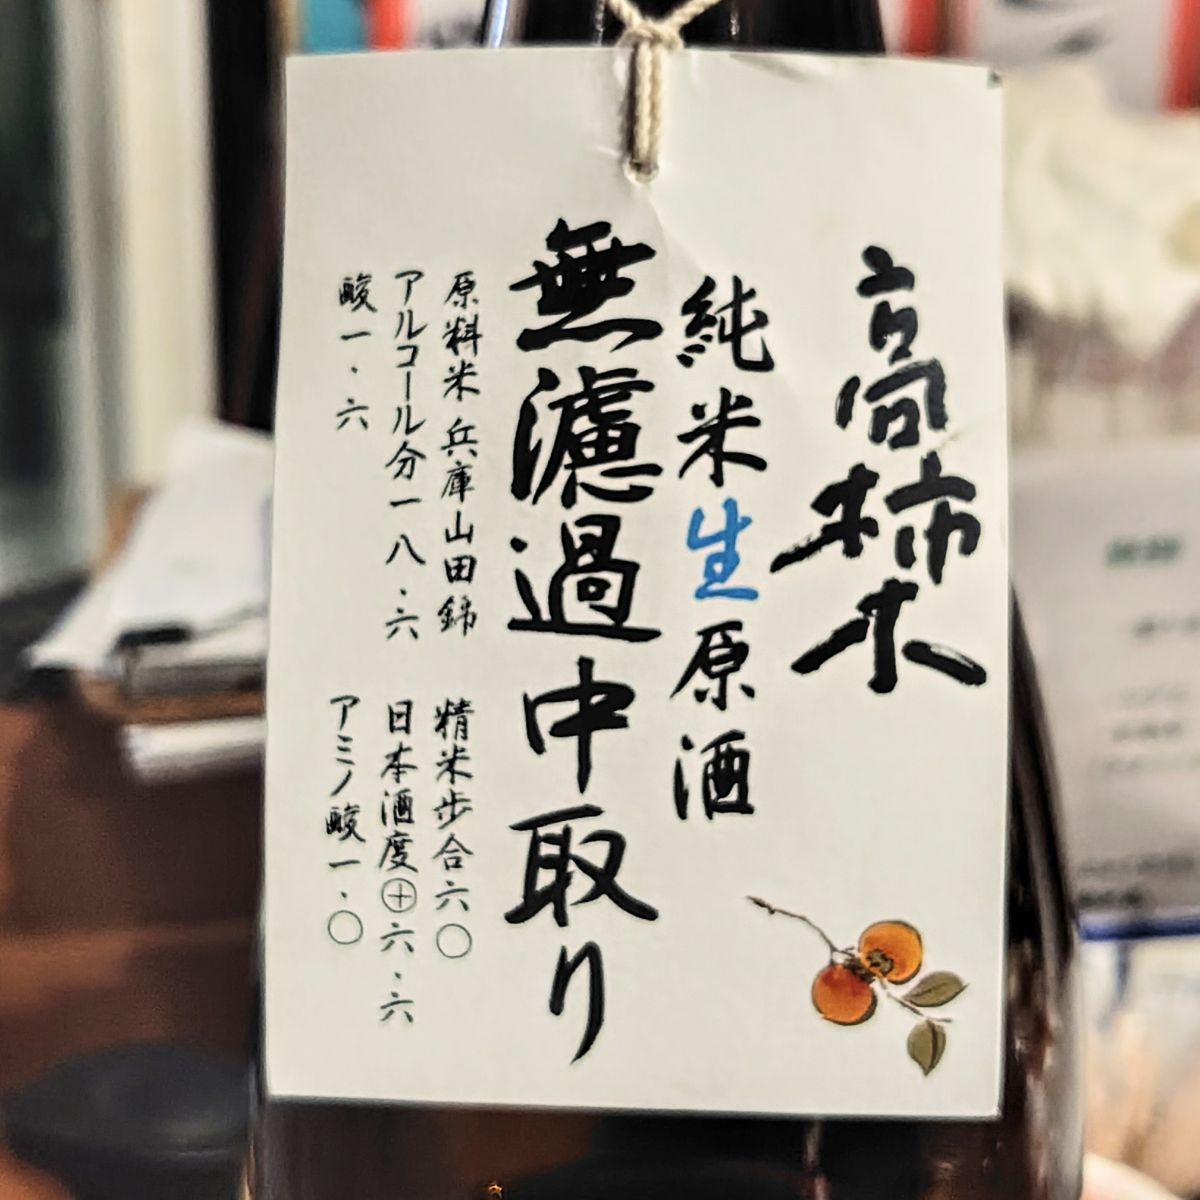 高柿木
純米生原酒
無濾過中取り
原料米 兵庫山田錦 精米歩合六〇
アルコール分一八.六 日本酒度⊕六.六
酸一.六 アミノ酸一.〇